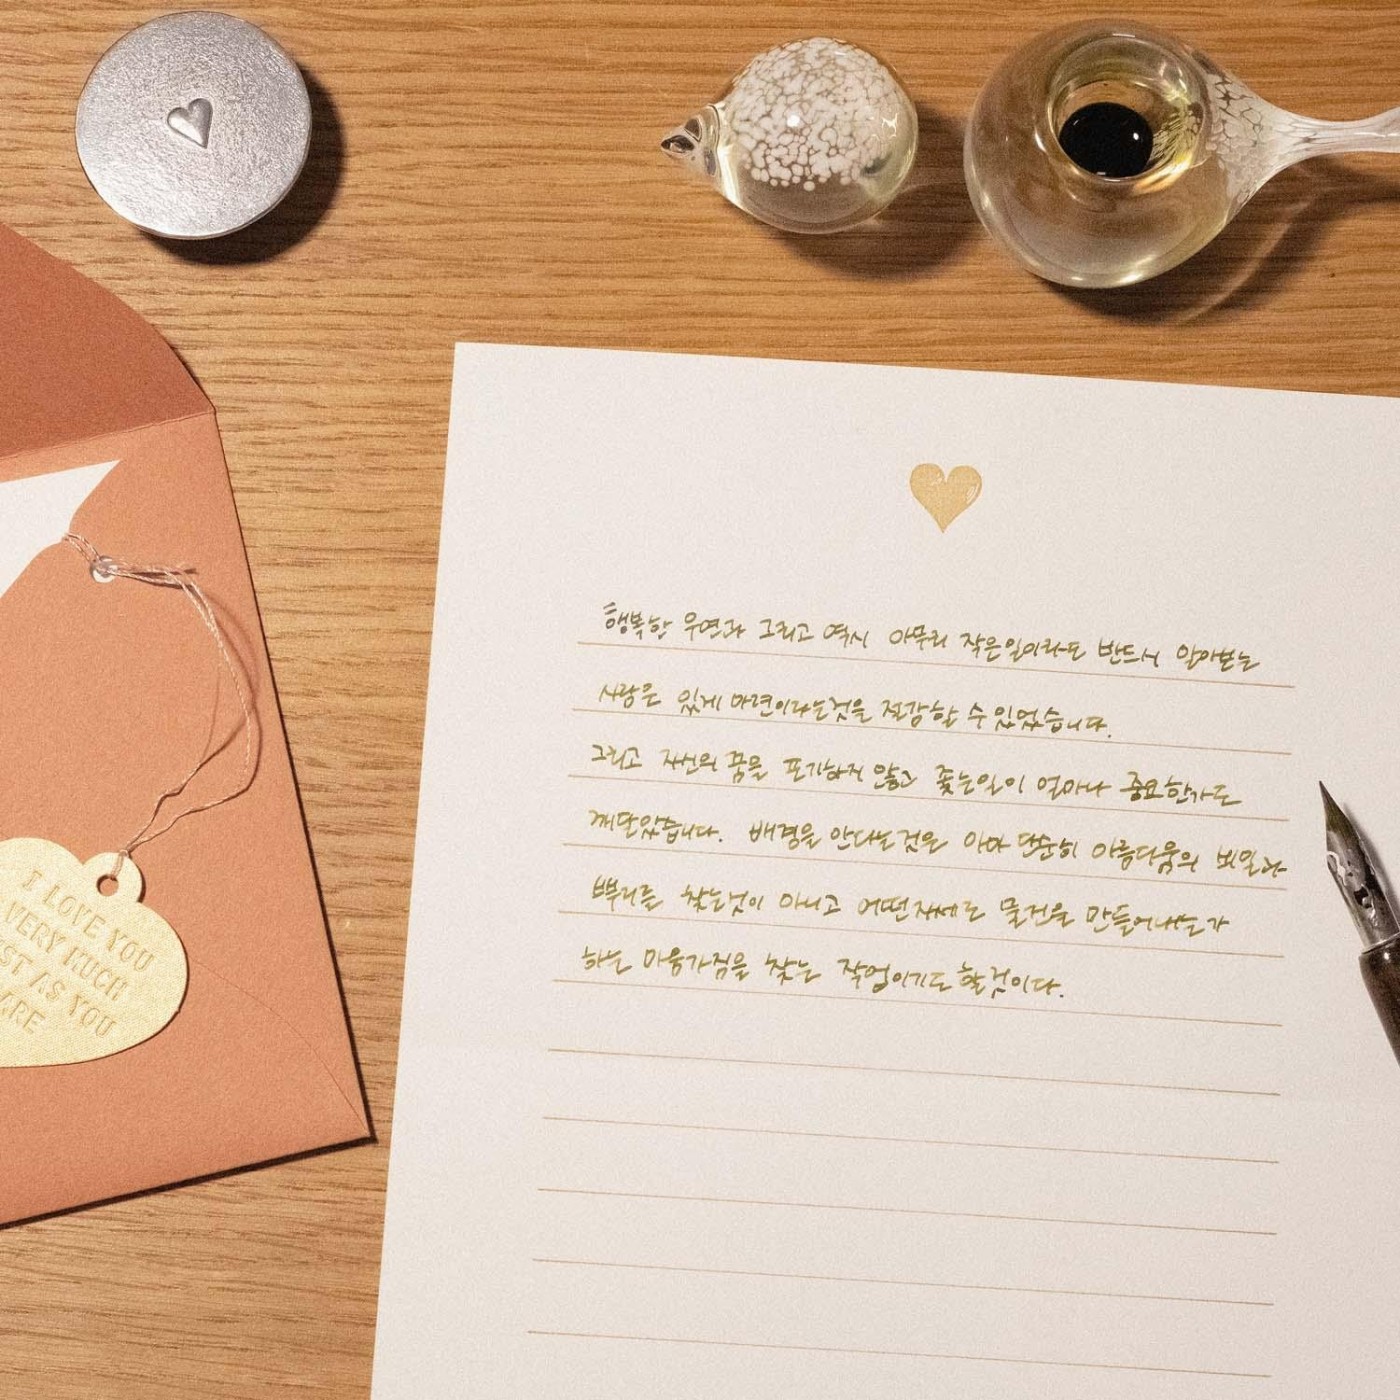 행복한 우연과 그리고 역시 아무리 작은일이라도 반드시 알아보는
사람은 있게 마련이라는것을 절감할 수 있었습니다.
그리고 자신의 꿈을 포기하지 않고 좇는일이 얼마나 중요한가도
깨달았습니다. 배경을 안다는것은 아마 단순히 아름다움의 비밀과
뿌리를 찾는것이 아니고 어떤자세로 물건을 만들어내는가
하는 마음가짐을 찾는 작업이기도 할것이다.
I LOVE YOU
VERY MUCH
AS YOU